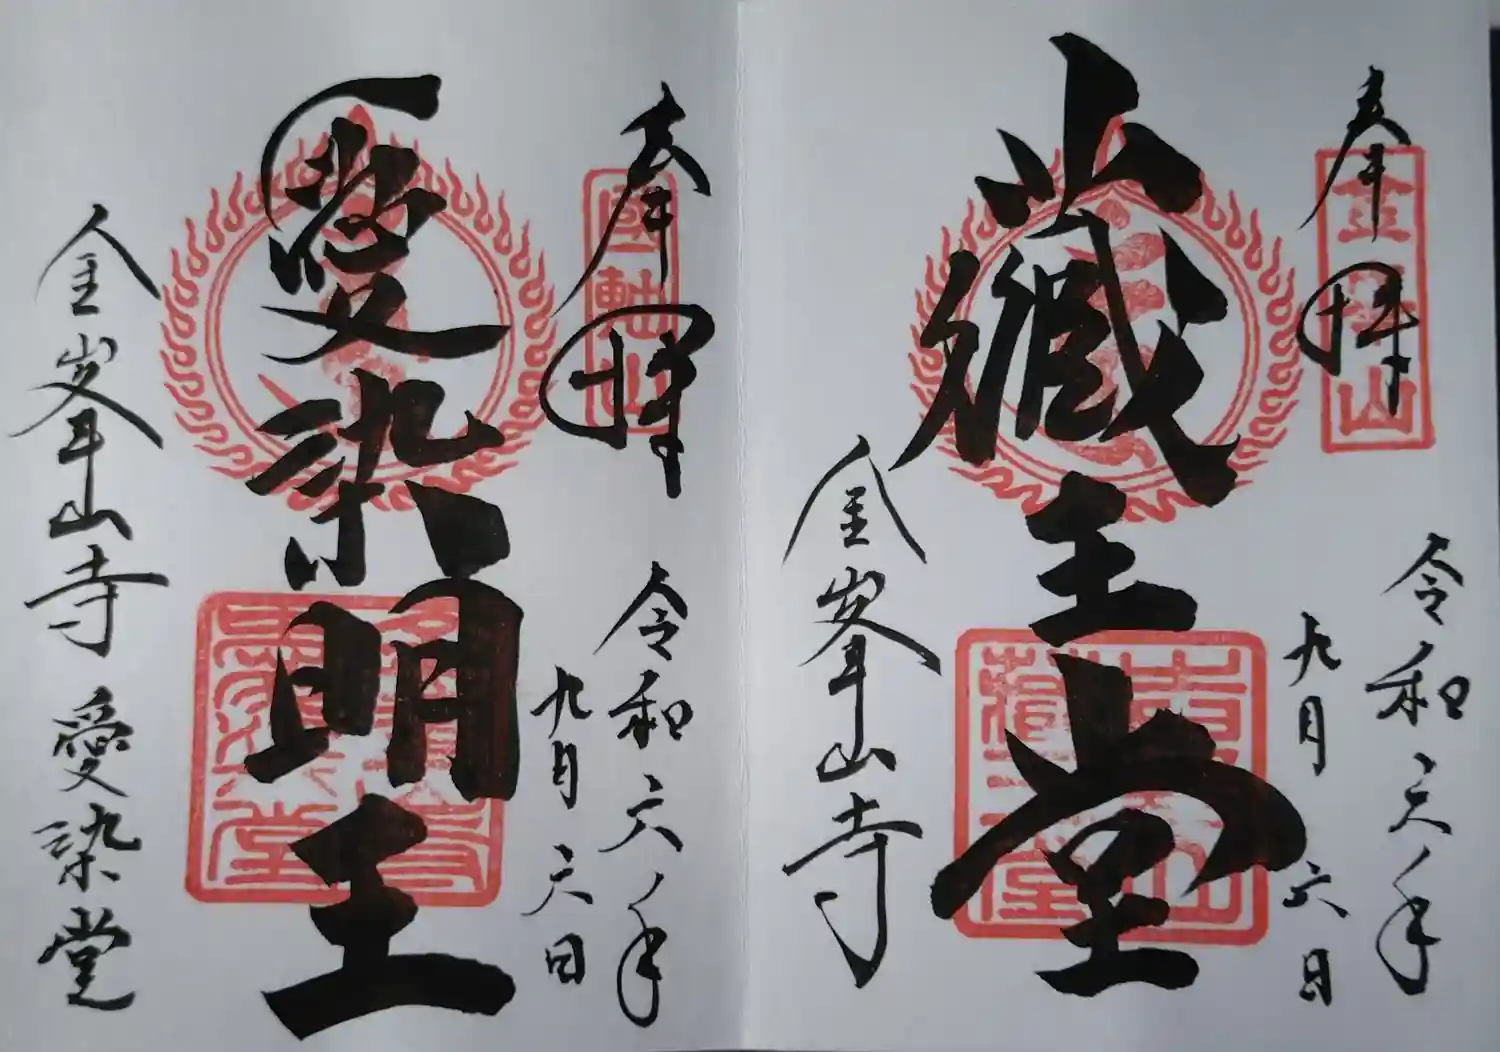 奉拝
令和六年
九月六日
藏王堂
金峯山寺
奉拝
令和六年
九月六日
愛染明王
金峯山寺 愛染堂
國軸山